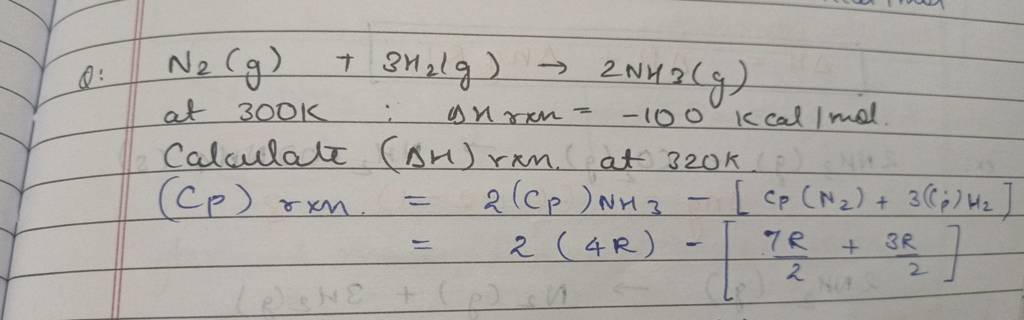 Q: N2(g) + 3H2(g) → 2NH3(g)
at 300K : ΔH rxn = -100 Kcal/mol.
Calculate (ΔH) rxn. at 320K.
(Cp) rxn. = 2(Cp)NH3 - [Cp(N2) + 3(Cp)H2]
= 2 (4R) - [7R/2 + 3R/2]